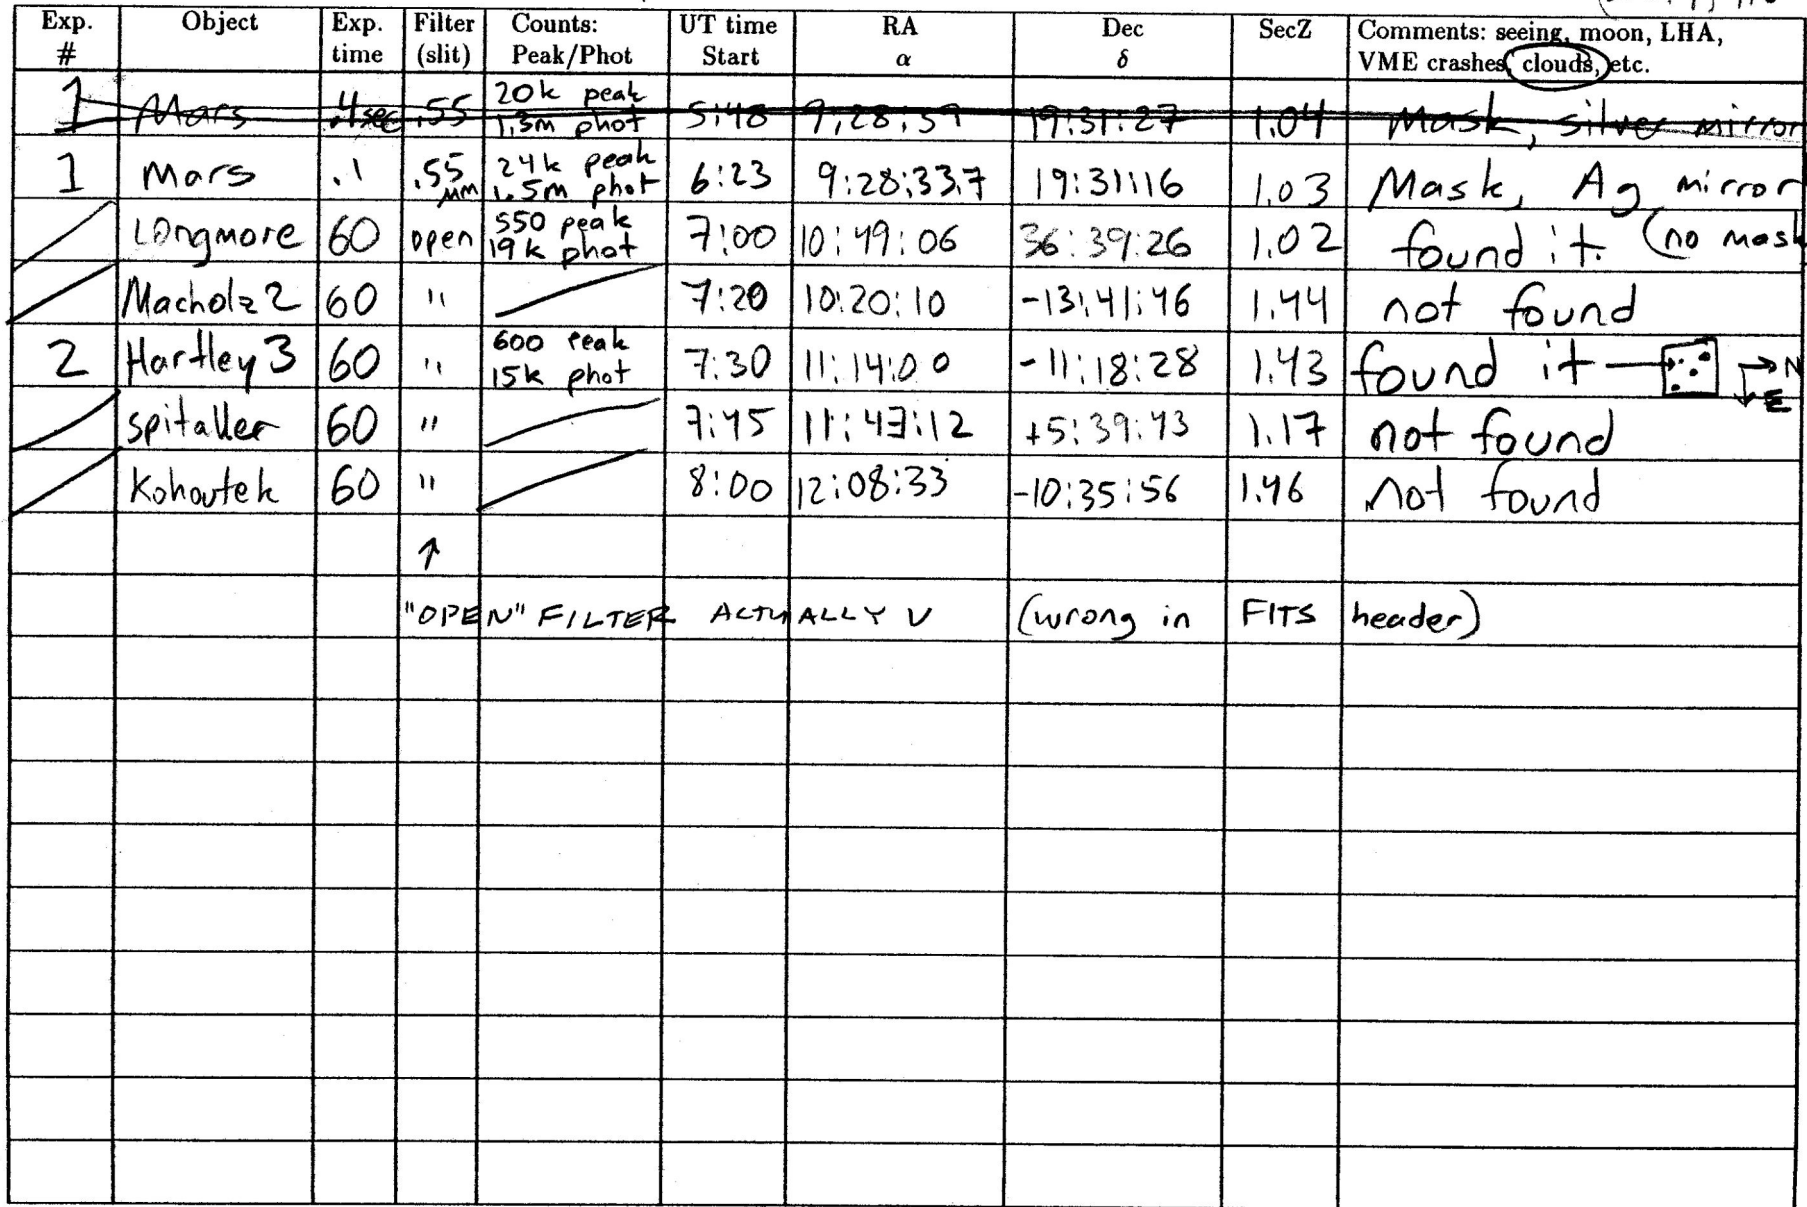 Exp. # Object Exp. time Filter (slit) Counts: Peak/Phot UT time Start RA α Dec δ SecZ Comments: seeing, moon, LHA, VME crashes, clouds, etc.
1 Mars .4sec .55 20k peak 1.3m phot 5:48 9:28:39 19:31:27 1.04 Mask, silver mirror
1 Mars .1 .55 μm 24k peak 1.5m phot 6:23 9:28:33.7 19:31:16 1.03 Mask, Ag mirror
Longmore 60 open 550 peak 19k phot 7:00 10:49:06 36:39:26 1.02 found it. (no mask
Macholz 2 60 " 7:20 10:20:10 -13:41:46 1.44 not found
2 Hartley 3 60 " 600 peak 15k phot 7:30 11:14:00 -11:18:28 1.43 found it N E
spitaller 60 " 7:45 11:47:12 +5:39:43 1.17 not found
Kohoutek 60 " 8:00 12:08:33 -10:35:56 1.46 not found
↑
"OPEN" FILTER ACTUALLY V (wrong in FITS header)